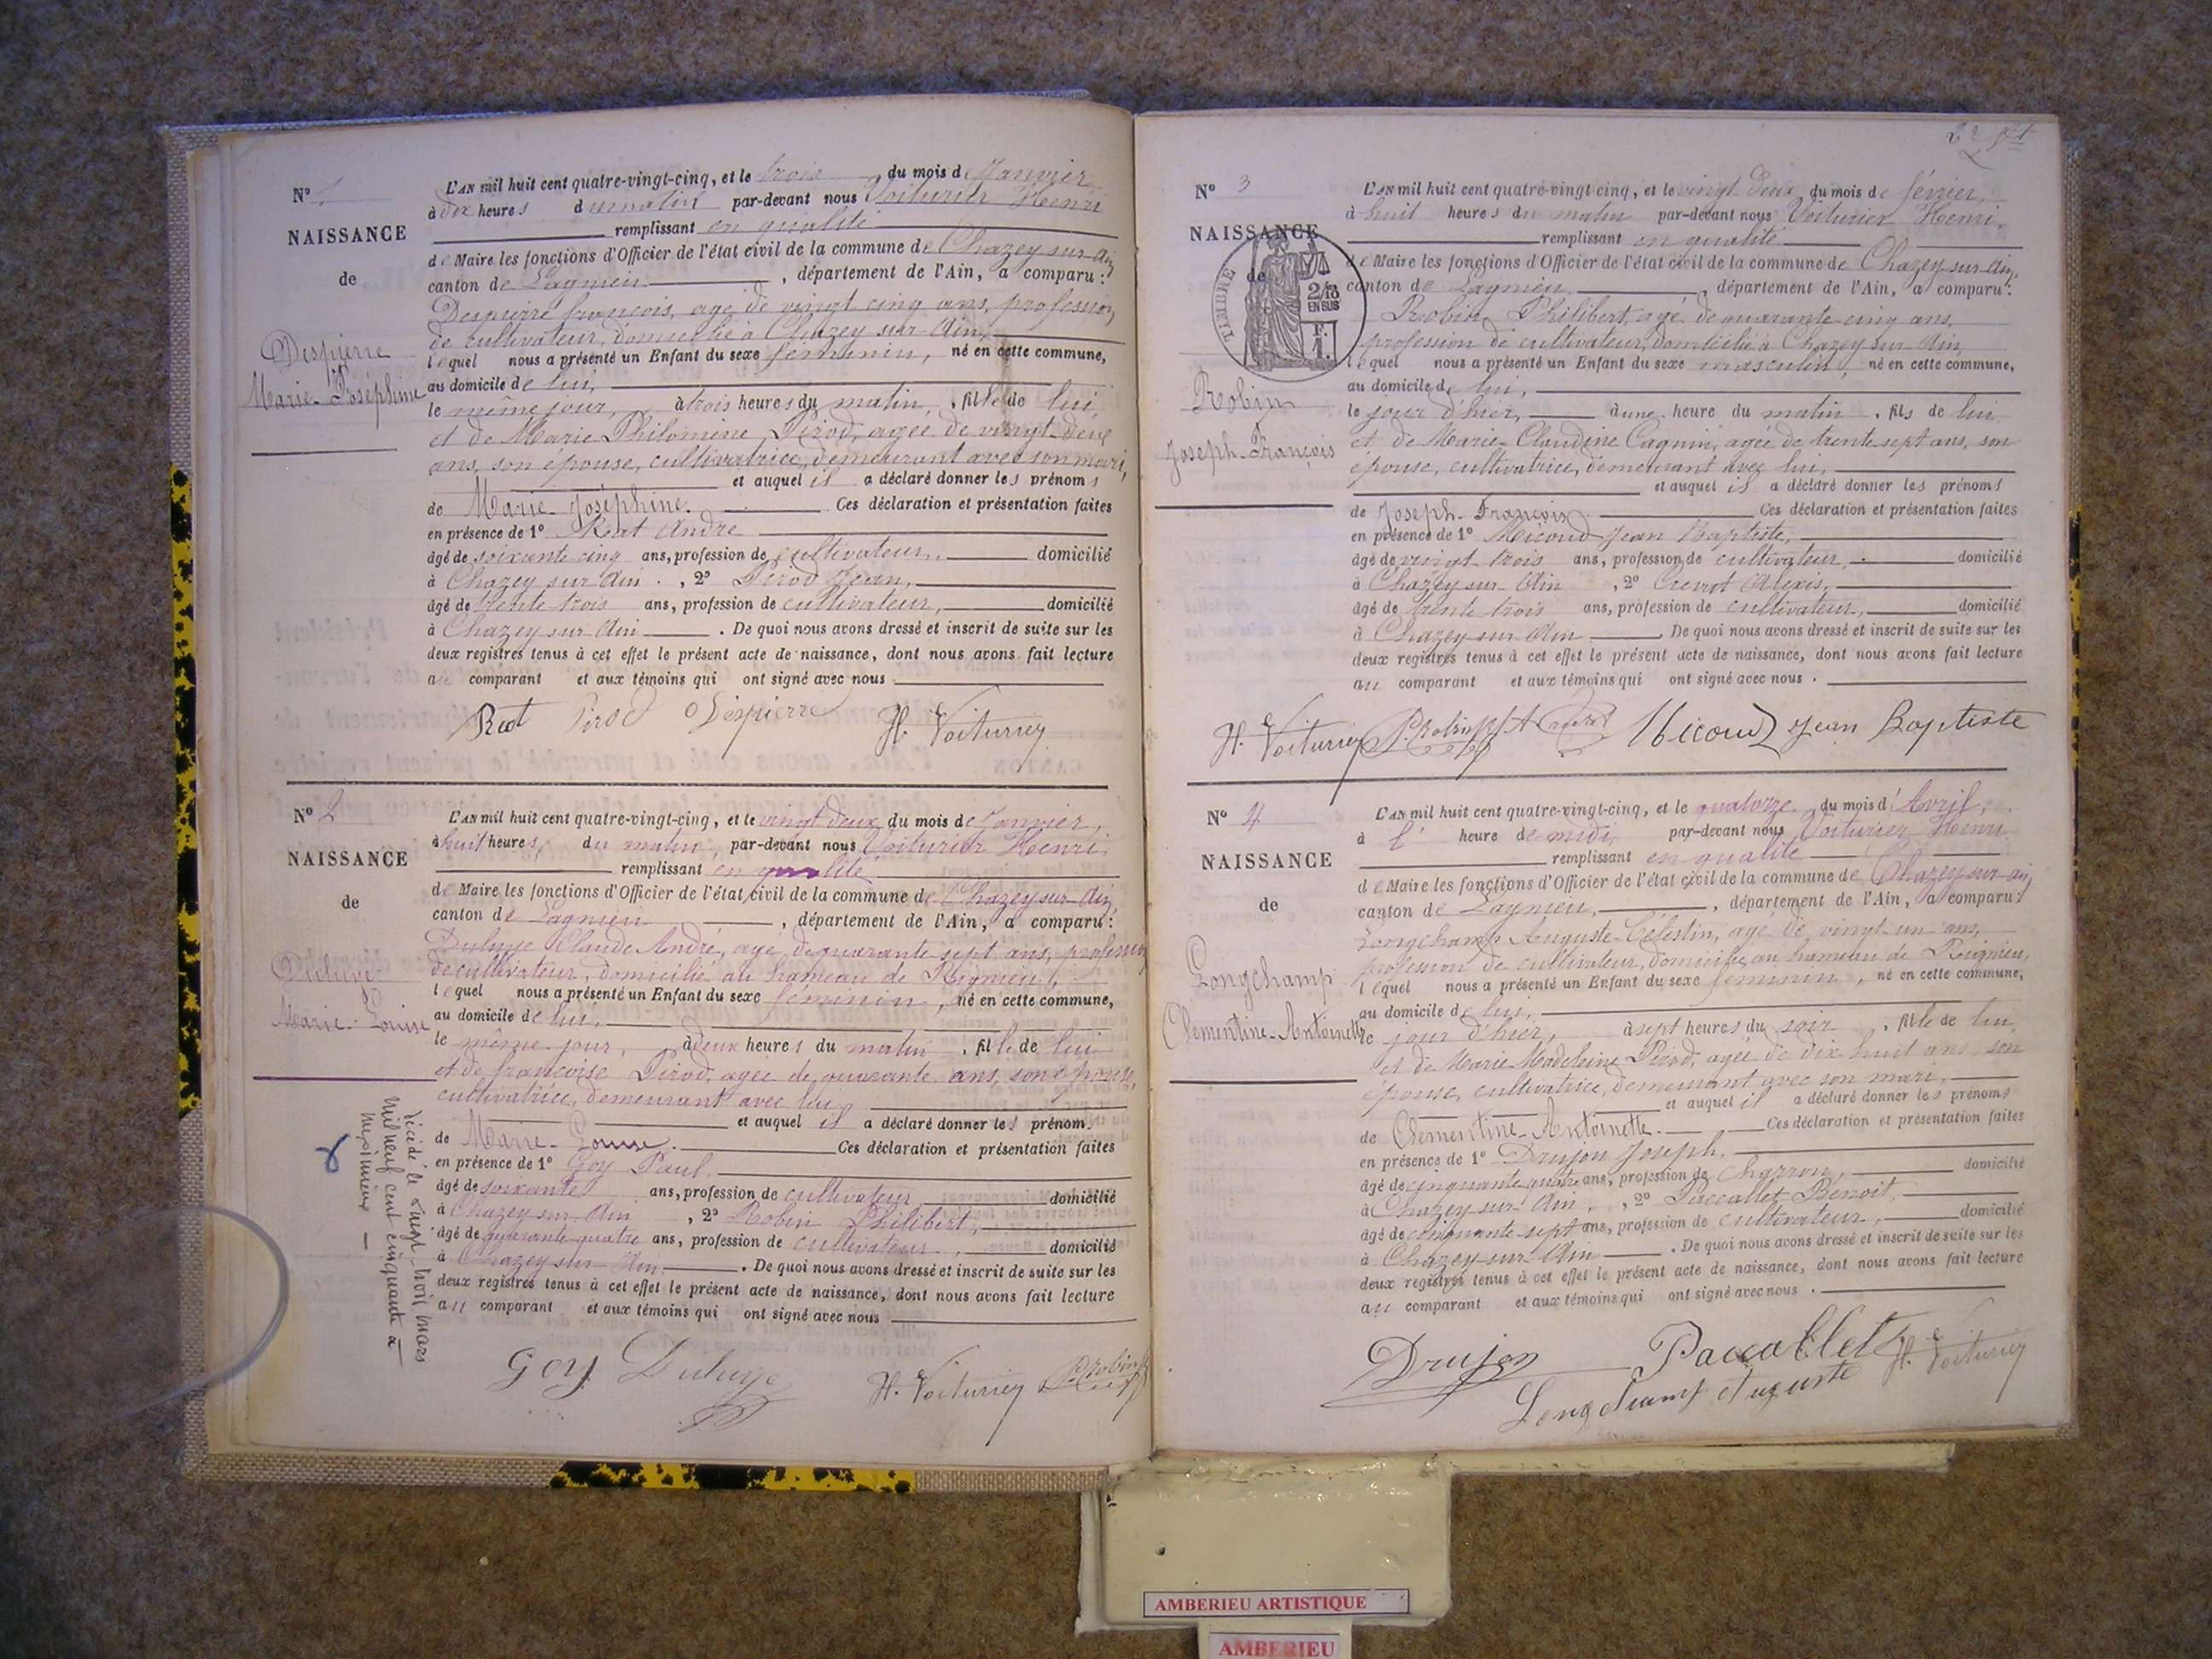 Nº 1
NAISSANCE
de
Despierre
Marie-Joséphine
L'AN mil huit cent quatre-vingt-cinq, et le trois du mois de Janvier
à dix heures du matin par-devant nous Voiturier Henri
remplissant en qualité
de Maire les fonctions d'Officier de l'état civil de la commune de Chazey sur Ain
canton de Lagnieu, département de l'Ain, a comparu :
Despierre françois, agé de vingt cinq ans, profession
de cultivateur, domicilié à Chazey sur Ain,
lequel nous a présenté un Enfant du sexe féminin, né en cette commune,
au domicile de lui,
le même jour, à trois heures du matin, fille de lui
et de Marie Philomène Pirod, agée de vingt deux
ans, son épouse, cultivatrice, demeurant avec son mari,
et auquel il a déclaré donner les prénoms
de Marie-Joséphine. Ces déclaration et présentation faites
en présence de 1º Réat André
âgé de soixante cinq ans, profession de cultivateur, domicilié
à Chazey sur Ain, 2º Pirod Jean,
âgé de trente trois ans, profession de cultivateur, domicilié
à Chazey sur Ain. De quoi nous avons dressé et inscrit de suite sur les
deux registres tenus à cet effet le présent acte de naissance, dont nous avons fait lecture
au comparant et aux témoins qui ont signé avec nous
Pirod Despierre H. Voiturier
Nº 2
NAISSANCE
de
Duluye
Marie-Louise
L'AN mil huit cent quatre-vingt-cinq, et le vingt deux du mois de Janvier,
à huit heures, du matin, par-devant nous Voiturier Henri
remplissant en qualité
de Maire les fonctions d'Officier de l'état civil de la commune de Chazey sur Ain,
canton de Lagnieu, département de l'Ain, a comparu :
Duluye Claude André, agé de quarante sept ans, profession
de cultivateur, domicilié au hameau de Rignieu,
lequel nous a présenté un Enfant du sexe féminin, né en cette commune,
au domicile de lui,
le même jour, à deux heures du matin, fille de lui
et de françoise Pirod, agée de quarante ans, son épouse,
cultivatrice, demeurant avec lui,
et auquel il a déclaré donner les prénoms
de Marie-Louise. Ces déclaration et présentation faites
en présence de 1º Goy Paul,
âgé de soixante ans, profession de cultivateur domicilié
à Chazey sur Ain, 2º Robin Philibert,
âgé de quarante quatre ans, profession de cultivateur, domicilié
à Chazey sur Ain. De quoi nous avons dressé et inscrit de suite sur les
deux registres tenus à cet effet le présent acte de naissance, dont nous avons fait lecture
au comparant et aux témoins qui ont signé avec nous
Décédé le vingt-trois mars
mil neuf cent cinquante à
Meximieux
Goy Duluye H. Voiturier P. Robin
Nº 3
NAISSANCE
de
TIMBRE
2/10
EN SUS
F.
1.
Robin
Joseph-François
L'AN mil huit cent quatre-vingt-cinq, et le vingt deux du mois de février,
à huit heures du matin par-devant nous Voiturier Henri,
remplissant en qualité
de Maire les fonctions d'Officier de l'état civil de la commune de Chazey sur Ain,
canton de Lagnieu, département de l'Ain, a comparu :
Robin Philibert, agé de quarante cinq ans,
profession de cultivateur, domicilié à Chazey sur Ain,
lequel nous a présenté un Enfant du sexe masculin, né en cette commune,
au domicile de lui,
le jour d'hier, à une heure du matin, fils de lui
et de Marie-Claudine Cagnin, agée de trente sept ans, son
épouse, cultivatrice, demeurant avec lui,
et auquel il a déclaré donner les prénoms
de Joseph-François. Ces déclaration et présentation faites
en présence de 1º Micoud Jean Baptiste,
âgé de vingt trois ans, profession de cultivateur, domicilié
à Chazey sur Ain, 2º Crevrot Alexis,
âgé de trente trois ans, profession de cultivateur, domicilié
à Chazey sur Ain. De quoi nous avons dressé et inscrit de suite sur les
deux registres tenus à cet effet le présent acte de naissance, dont nous avons fait lecture
au comparant et aux témoins qui ont signé avec nous.
H. Voiturier P. Robin Micoud Jean Baptiste
Nº 4
NAISSANCE
de
Longchamp
Clementine-Antoinette
L'AN mil huit cent quatre-vingt-cinq, et le quatorze du mois d'Avril,
à l' heure de midi, par-devant nous Voiturier Henri
remplissant en qualité
de Maire les fonctions d'Officier de l'état civil de la commune de Chazey sur Ain
canton de Lagnieu, département de l'Ain, a comparu :
Longchamp Auguste-Célestin, agé de vingt-un ans,
profession de cultivateur, domicilié au hameau de Rignieu,
lequel nous a présenté un Enfant du sexe féminin, né en cette commune,
au domicile de lui,
le jour d'hier, à sept heures du soir, fille de lui
et de Marie Madeleine Pirod, agée de dix huit ans, son
épouse, cultivatrice, demeurant avec son mari,
et auquel il a déclaré donner les prénoms
de Clementine-Antoinette. Ces déclaration et présentation faites
en présence de 1º Drujon Joseph,
âgé de cinquante quatre ans, profession de charron, domicilié
à Chazey sur Ain, 2º Paccallet Benoit,
âgé de cinquante sept ans, profession de cultivateur, domicilié
à Chazey sur Ain. De quoi nous avons dressé et inscrit de suite sur les
deux registres tenus à cet effet le présent acte de naissance, dont nous avons fait lecture
au comparant et aux témoins qui ont signé avec nous.
Drujon Paccallet H. Voiturier
Longchamp Auguste
AMBERIEU ARTISTIQUE
AMBERIEU